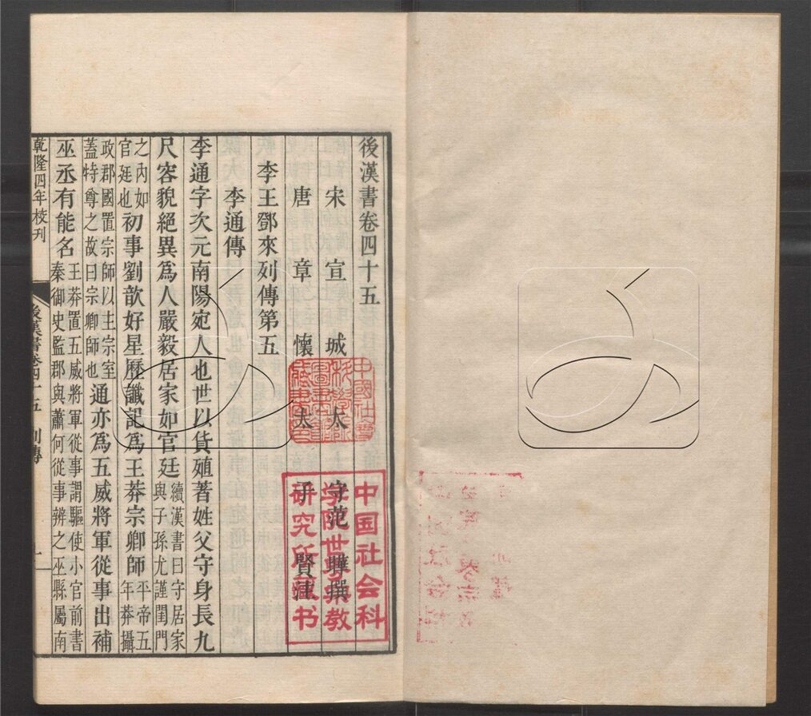 後漢書卷四十五
宋宣城太守范曄撰
唐章懷太子賢注
李王鄧來列傳第五
李通傳
李通字次元南陽宛人也世以貨殖著姓父守身長九
尺容貌絕異為人嚴毅居家如官廷續漢書曰守居家與子孫尤謹閨門
之內如官廷也初事劉歆好星歷讖記為王莽宗卿師平帝五年莽攝
政郡國置宗師以主宗室蓋特尊之故曰宗卿師也通亦為五威將軍從事出補
巫丞有能名王莽置五威將軍從事謂驅使小官前書秦御史監郡與蕭何從事辨之巫縣屬南
乾隆四年校刊
後漢書卷四十五
列傳
一
中国社会科
学院世界宗教
研究所藏书